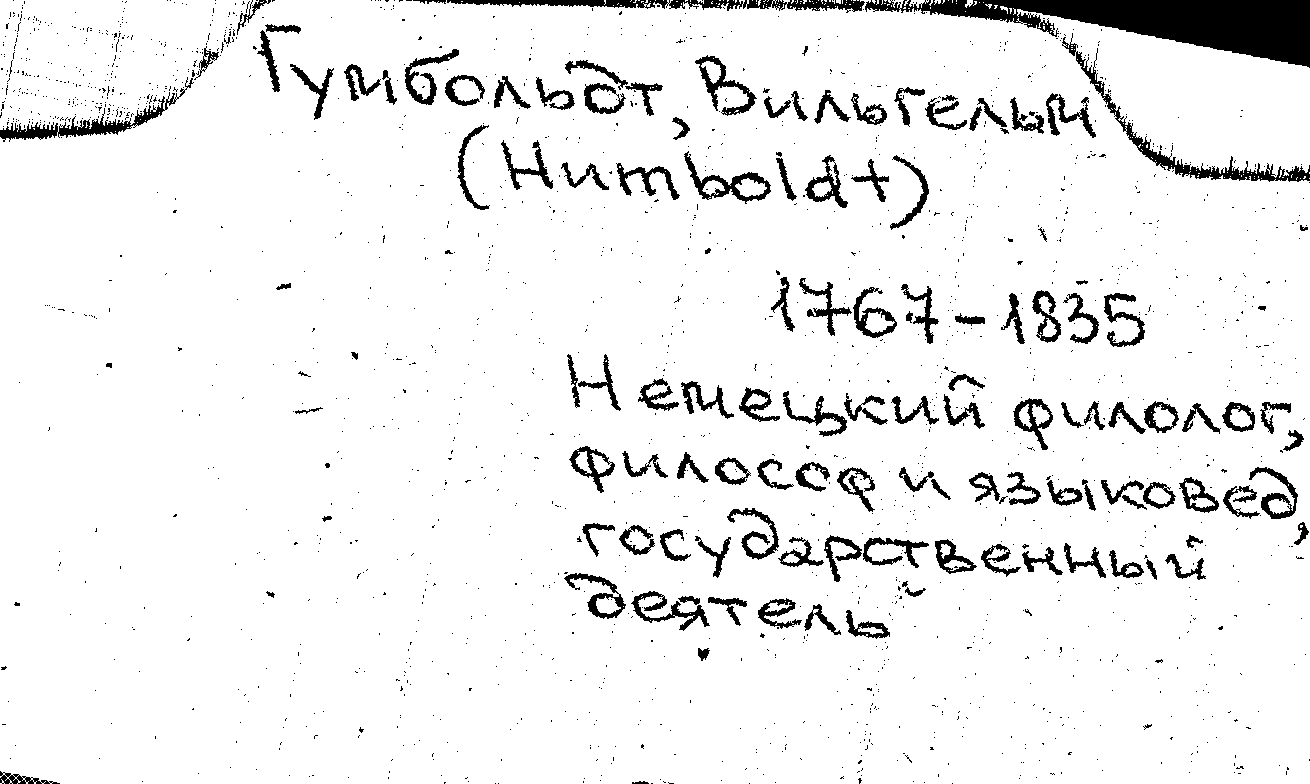 Гумбольдт, Вильгельм
(Humboldt)
1767-1835
Немецкий филолог,
философ и языковед,
государственный
деятель